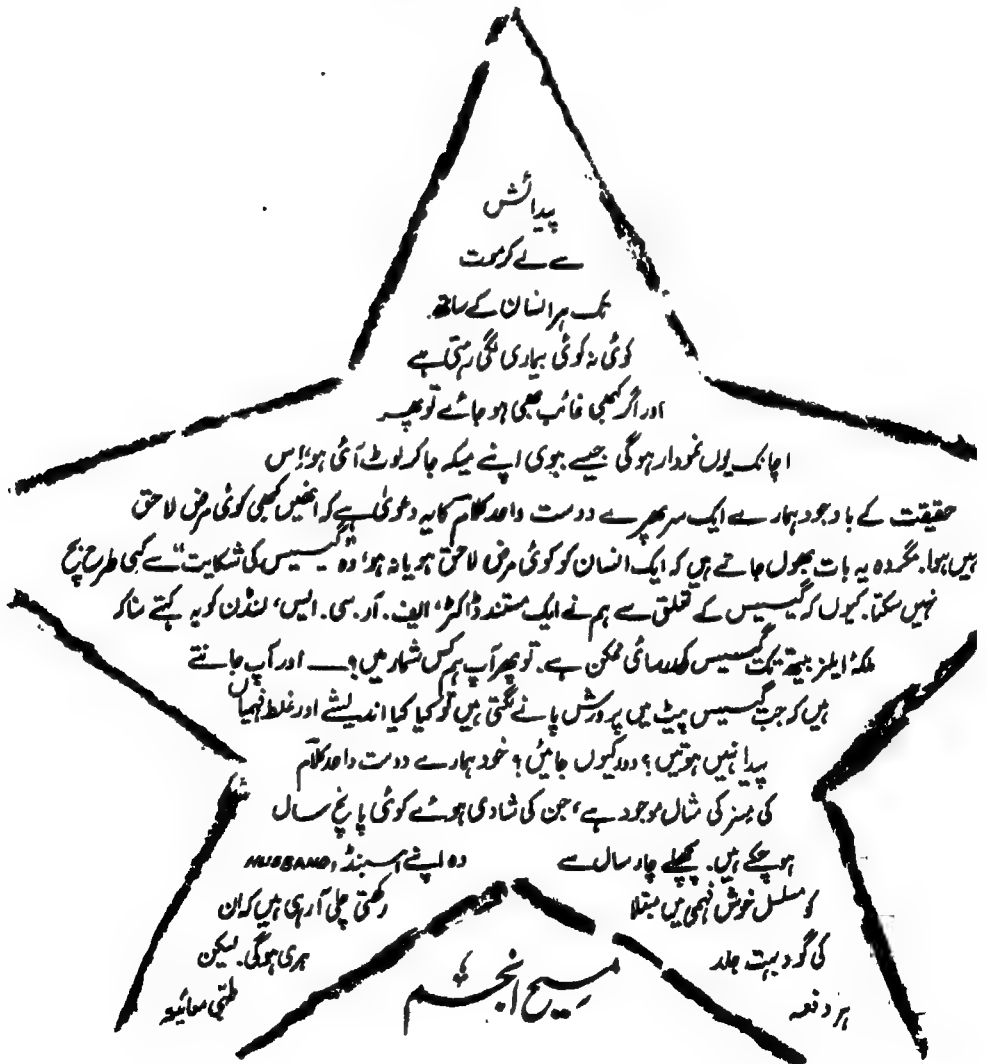 پیدائش
سے لے کر موت
تک ہر انسان کے ساتھ
کوئی نہ کوئی بیماری لگی رہتی ہے
اور اگر کبھی غائب بھی ہو جائے تو پھر
اچانک یوں نمودار ہوگی جیسے بیوی اپنے میکہ جا کر لوٹ آئی ہو! اِس
حقیقت کے باوجود ہمارے ایک سر پھرے دوست واحد کلام کا یہ دعویٰ ہے کہ انھیں کبھی کوئی مرض لاحق
نہیں ہوا. مگر وہ یہ بات بھول جاتے ہیں کہ ایک انسان کو کوئی مرض لاحق ہو یا نہ ہو، وہ "گیسیس کی شکایت" سے کسی طرح بچ
نہیں سکتا. کیوں کہ گیسیس کے تعلق سے ہم نے ایک مستند ڈاکٹر، ایف. آر. سی. ایس، لندن کو یہ کہتے سنا کہ
ملکۂ ایلزبیتھ تک گیسیس کی رسائی ممکن ہے. تو پھر آپ ہم کس شمار میں؟ — اور آپ جانتے
ہیں کہ جب گیسیس پیٹ میں پرورش پانے لگتی ہیں تو کیا کیا اندیشے اور غلط فہمیاں
پیدا نہیں ہوتیں؟ دور کیوں جائیں؟ خود ہمارے دوست واحد کلام
کی مسز کی مثال موجود ہے، جن کی شادی ہوئے کوئی پانچ سال
ہو چکے ہیں. پچھلے چار سال سے وہ اپنے ہسبنڈ (HUSBAND)
کو مسلسل خوش فہمی میں مبتلا رکھتی چلی آ رہی ہیں کہ ان
کی گود بہت جلد ہری ہوگی. لیکن
ہر دفعہ طبّی معائنہ
مسیح انجم